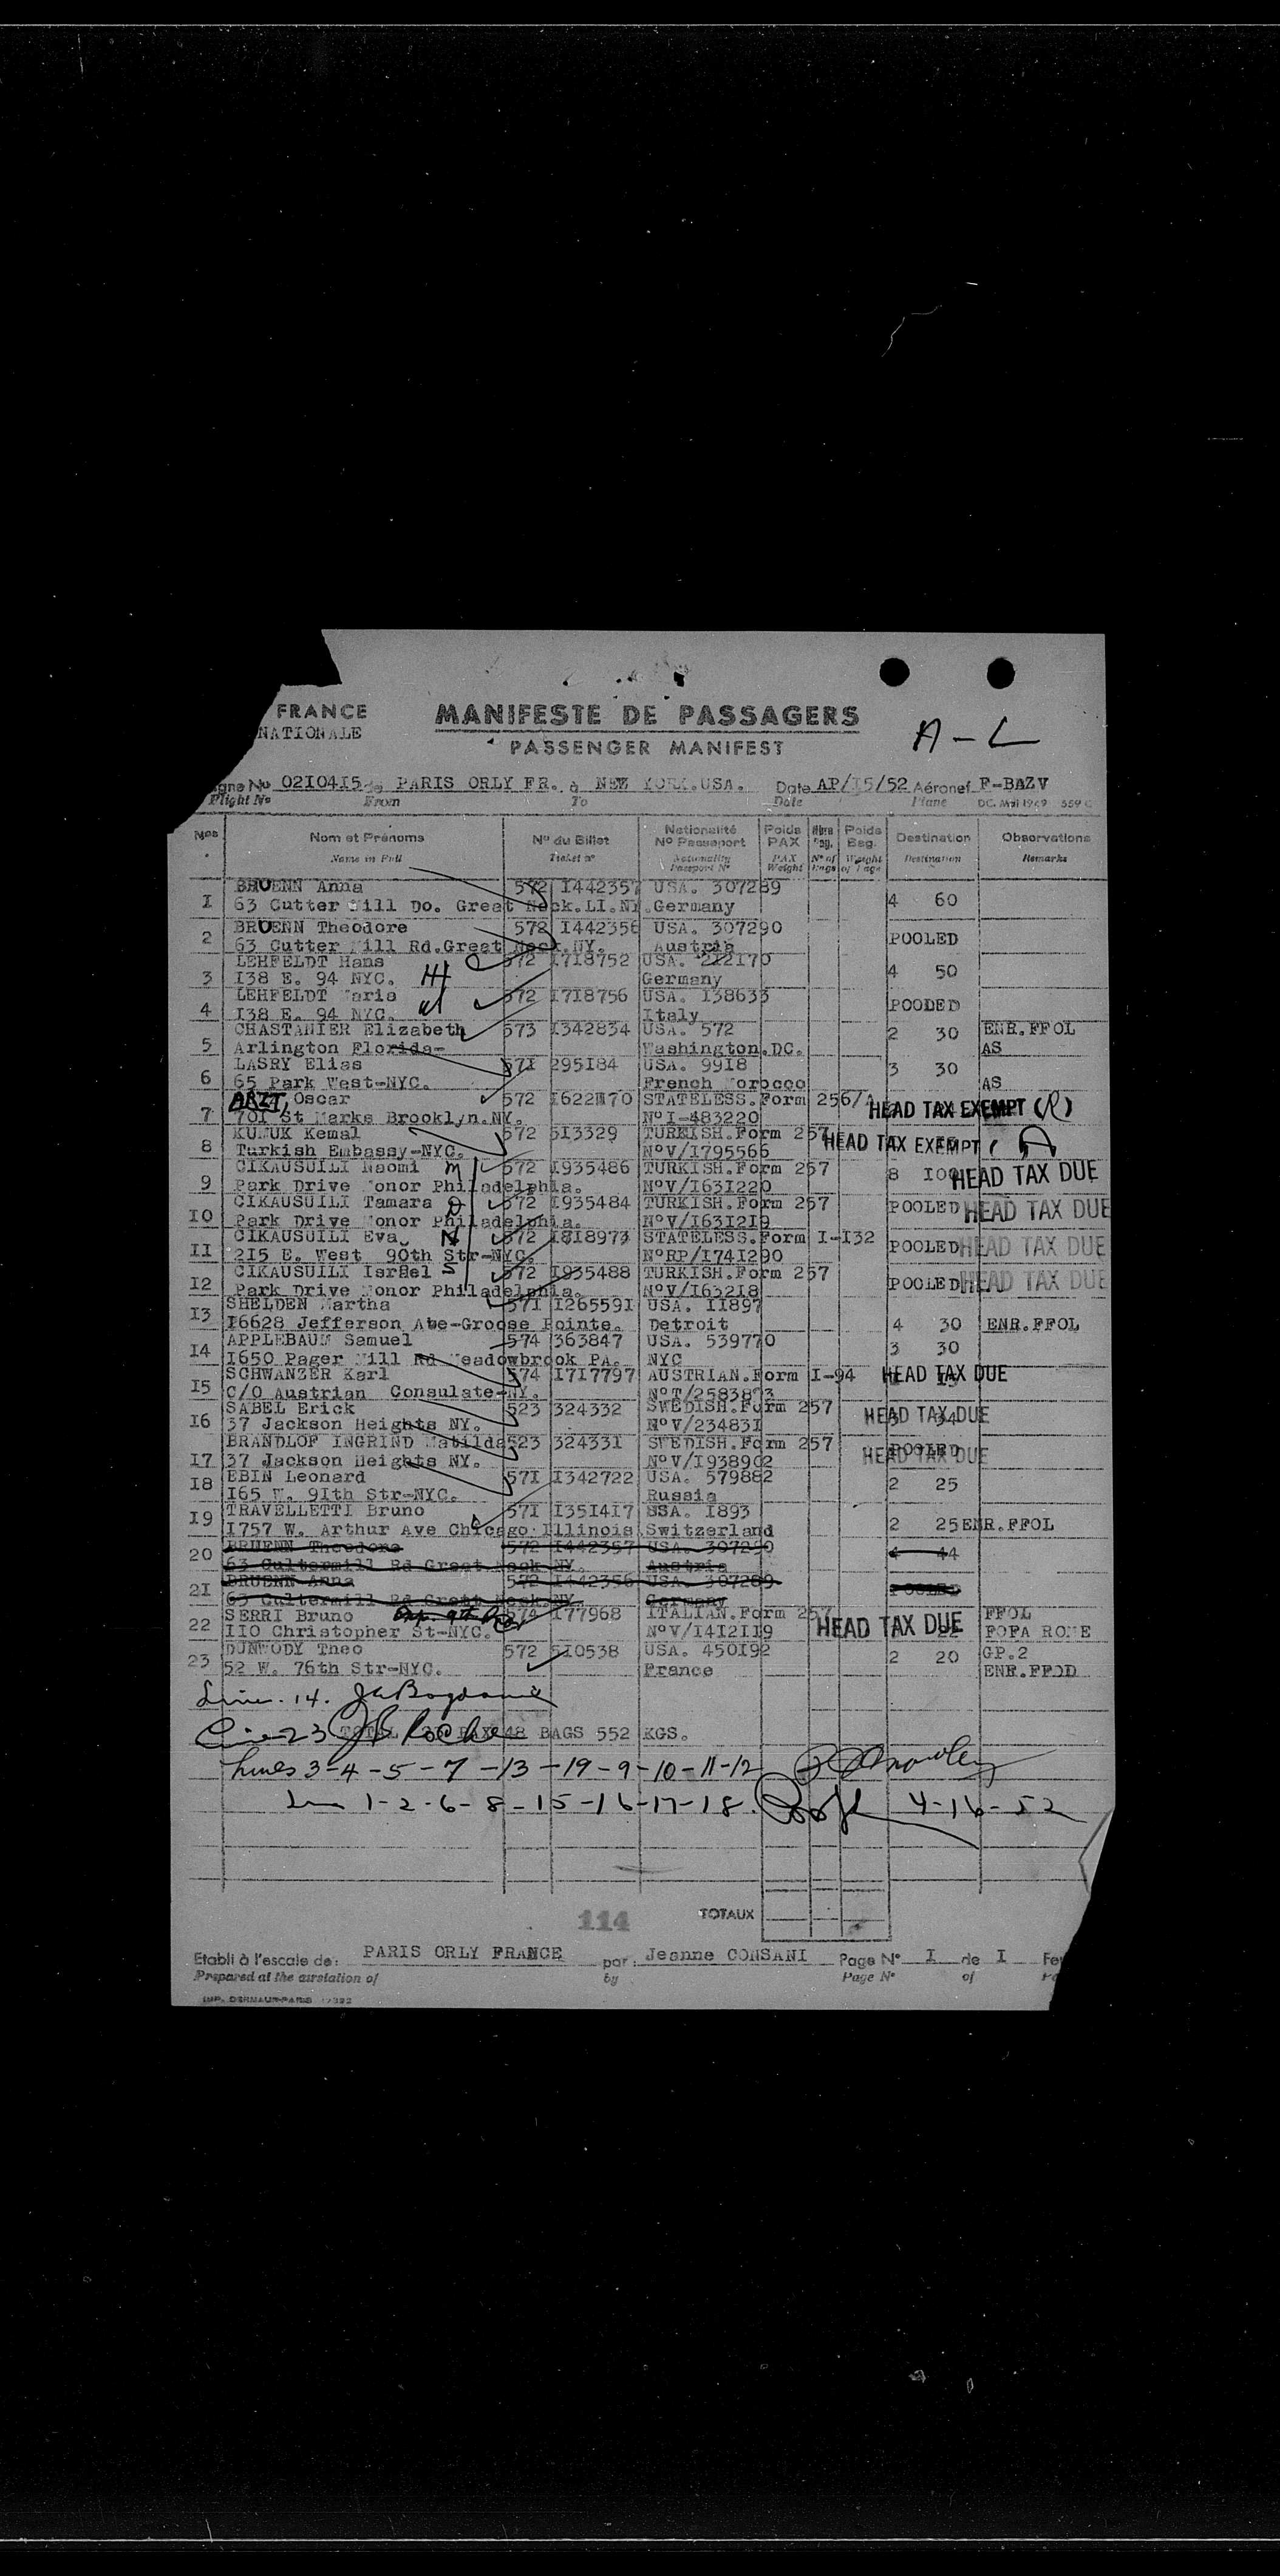 FRANCE
NATIONALE
MANIFESTE DE PASSAGERS
PASSENGER MANIFEST
A - L
igne No 02I04I5 de PARIS ORLY FR. à NEW YORK.USA. Date AP/I5/52 Aéronef F-BAZV
Flight No From To Date Plane DC. Mai 1949 559 C
Nos Nom et Prénoms No du Billet Nationalité No Passeport Poids PAX Poids Bag. Destination Observations
Name in Full Ticket no Nationality Passport No PAX Weight No of Bags Weight of Bags Destination Remarks
I BRUENN Anna 572 I442357 USA. 307289 4 60
63 Cutter Mill Do. Great Neck.LI.NY. Germany
2 BRUENN Theodore 572 I442356 USA. 307290 POOLED
63 Cutter Mill Rd.Great Neck.NY. Austria
3 LEHFELDT Hans 572 I7I8752 USA. 2I2I70 4 50
I38 E. 94 NYC. H Germany
4 LEHFELDT Maria 572 I7I8756 USA. I38633 POODED
I38 E. 94 NYC. W Italy
5 CHASTANIER Elizabeth 573 I342834 USA. 572 2 30 ENR.FFOL
Arlington Florida- Washington.DC. AS
6 LASRY Elias 57I 295I84 USA. 99I8 3 30
65 Park West-NYC. French Morocco AS
7 ARZT, Oscar 572 I622M70 STATELESS.Form 256/A HEAD TAX EXEMPT (R)
70I St Marks Brooklyn.NY. NoI-483220
8 KUMUK Kemal 572 5I3329 TURKISH.Form 257 HEAD TAX EXEMPT
Turkish Embassy-NYC. NoV/I795566
9 CIKAUSUILI Naomi M 572 I935486 TURKISH.Form 257 8 I00 HEAD TAX DUE
Park Drive Monor Philadelphia. NoV/I63I220
I0 CIKAUSUILI Tamara D 572 I935484 TURKISH.Form 257 POOLED HEAD TAX DUE
Park Drive Monor Philadelphia. NoV/I63I2I9
II CIKAUSUILI Eva. 572 I8I8973 STATELESS.Form I-I32 POOLED HEAD TAX DUE
2I5 E. West 90th Str-NYC. NoRP/I74I290
I2 CIKAUSUILI Israel S 572 I935488 TURKISH.Form 257 POOLED HEAD TAX DUE
Park Drive Monor Philadelphia. NoV/I632I8
I3 SHELDEN Martha 57I I26559I USA. II897
I6628 Jefferson Abe-Groose Pointe. Detroit 4 30 ENR.FFOL
I4 APPLEBAUM Samuel 574 363847 USA. 539770 3 30
I650 Pager Mill Rd Meadowbrook PA. NYC
I5 SCHWANZER Karl 574 I7I7797 AUSTRIAN.Form I-94 HEAD TAX DUE
C/O Austrian Consulate-NY. NoT/2583873
I6 SABEL Erick 523 324332 SWEDISH.Form 257 HEAD TAX DUE
37 Jackson Heights NY. NoV/23483I
I7 BRANDLOF INGRIND Matilda 523 32433I SWEDISH.Form 257 POOLED HEAD TAX DUE
37 Jackson Heights NY. NoV/I938902
I8 EBIN Leonard 57I I342722 USA. 579882 2 25
I65 W. 9Ith Str-NYC. Russia
I9 TRAVELLETTI Bruno 57I I35I4I7 SSA. I893
I757 W. Arthur Ave Chicago Illinois Switzerland 2 25 ENR.FFOL
20 BRUENN Theodore 572 I442357 USA. 307290 4 44
63 Cultermill Rd Great Neck NY. Austria
2I BRUENN Anna 572 I442356 USA. 307289 POOLED
63 Cultermill Rd Great Neck.NY. Germany
22 SERRI Bruno 574 I77968 ITALIAN.Form 257 HEAD TAX DUE FFOL
II0 Christopher St-NYC. NoV/I4I2II9 FOFA ROME
23 DUNWODY Theo 572 5I0538 USA. 450I92 2 20 GP.2
52 W. 76th Str-NYC. France ENR.FFOD
Line. 14.
Line 23 TOTAL PAX 48 BAGS 552 KGS.
Lines 3-4-5-7-13-19-9-10-11-12
Line 1-2-6-8-15-16-17-18. 4-16-52
114 TOTAUX
Etabli à l'escale de: PARIS ORLY FRANCE par: Jeanne CONSANI Page No I de I
Prepared at the airstation of by Page No of
IMP. DERMAUX-PARIS